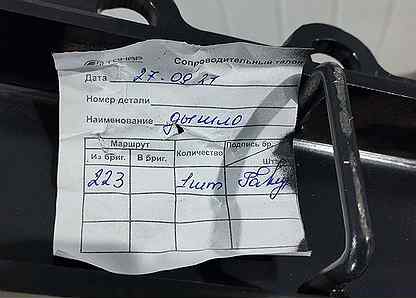 ТОНАР Сопроводительный талон
Дата 27 09 21
Номер детали
Наименование дышло
Маршрут Количество Подпись бр.
Из бриг. В бриг. Шт
223 1шт